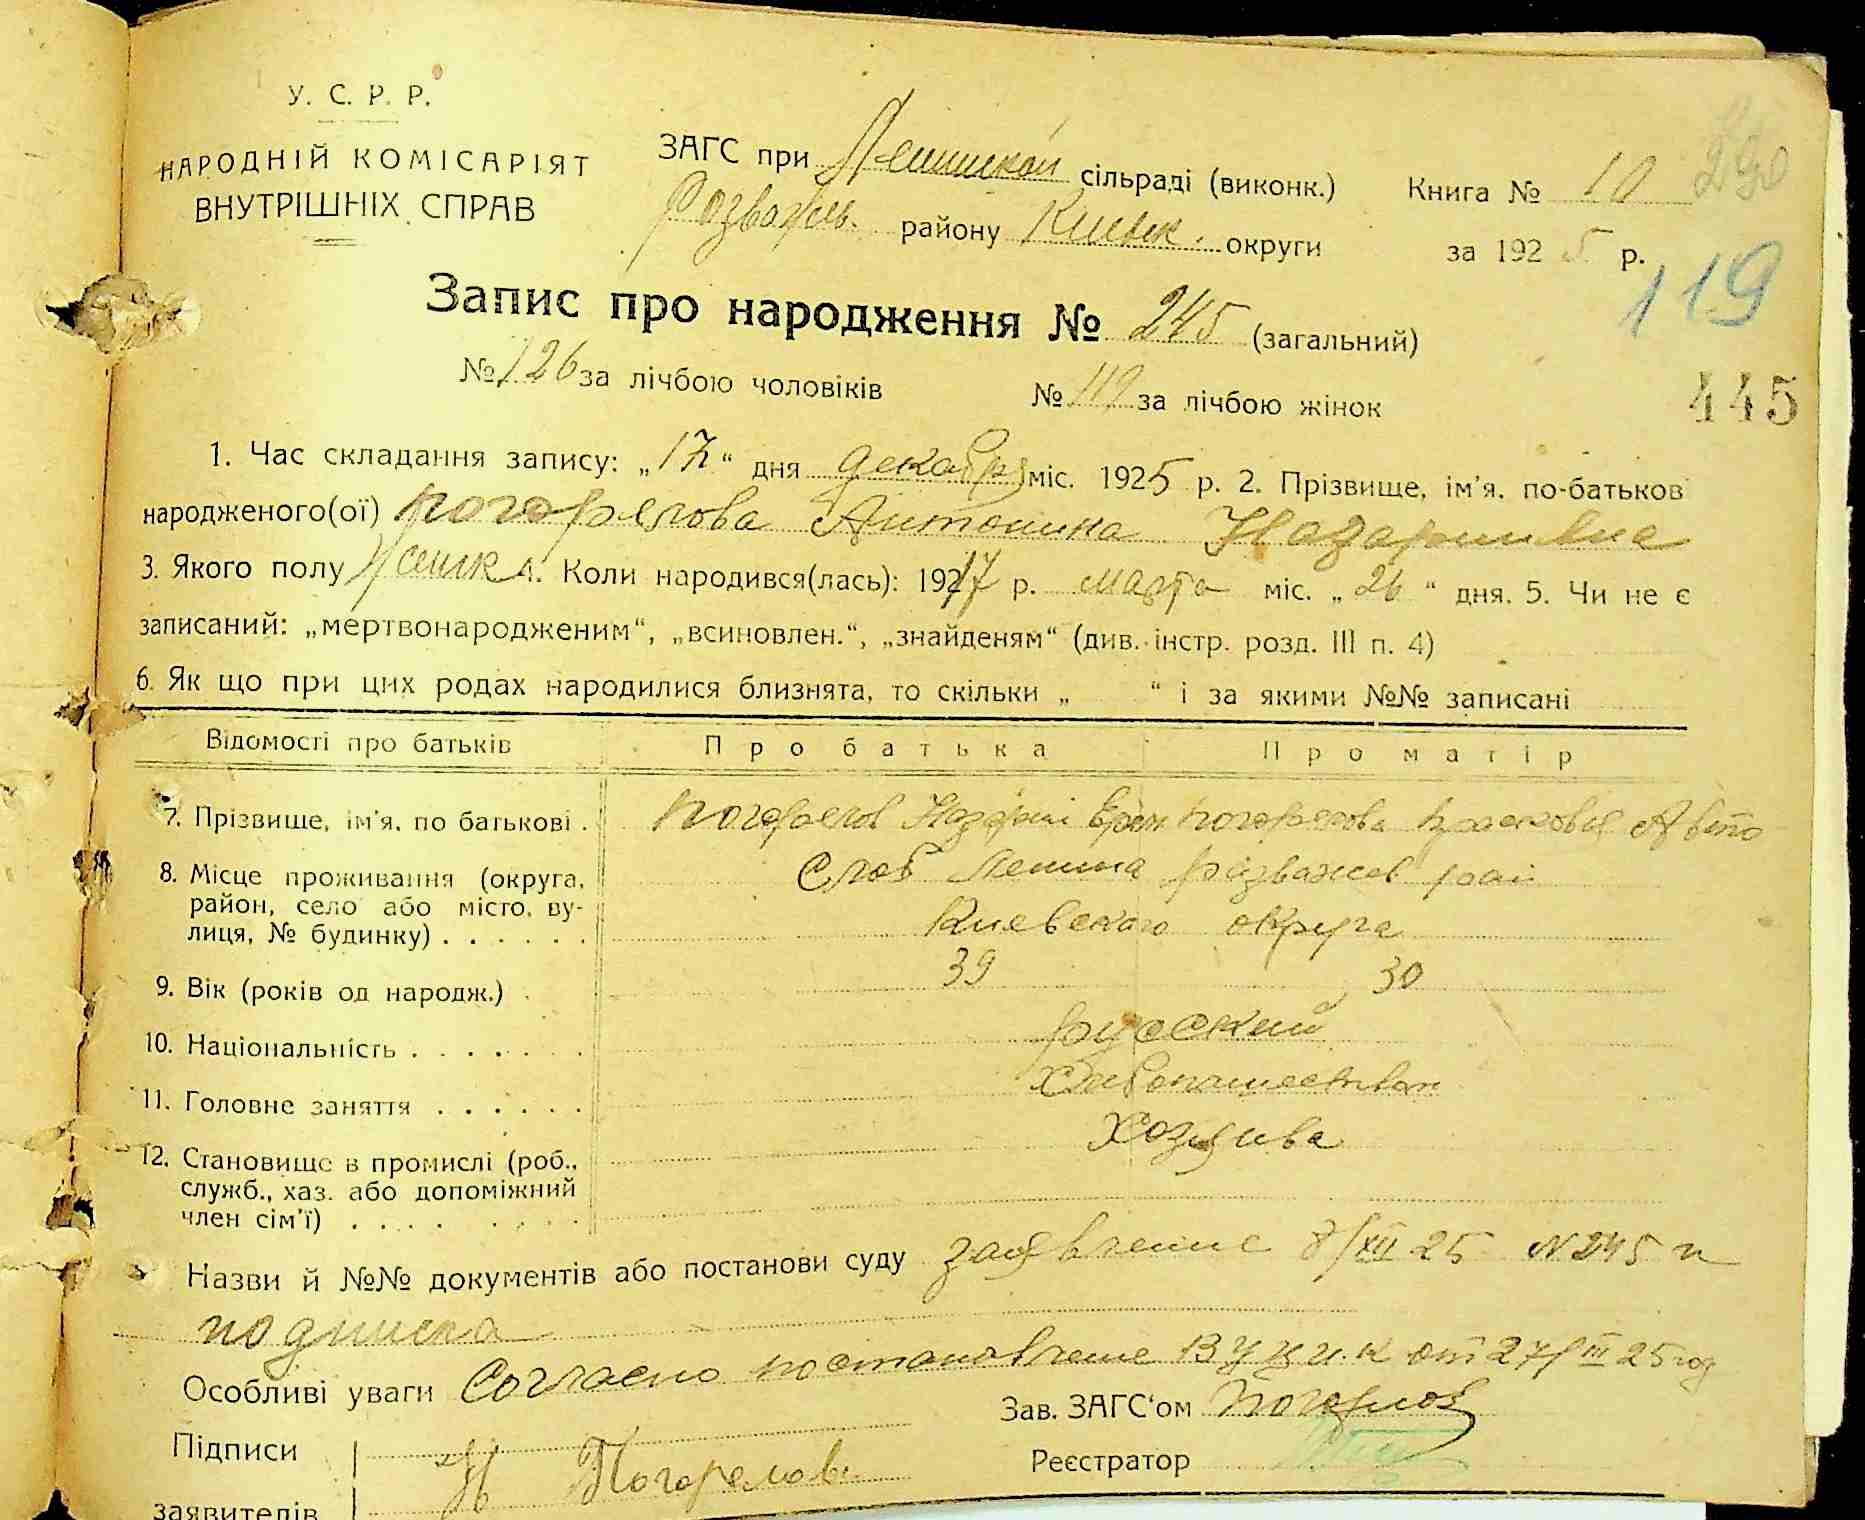 У. С. Р. Р.
НАРОДНІЙ КОМІСАРІЯТ
ВНУТРІШНІХ СПРАВ
ЗАГС при Ленинской сільраді (виконк.)
Розважів. району Киевск. округи
Книга № 10
за 1925 р.
119
Запис про народження № 245 (загальний)
№ 126 за лічбою чоловіків № 119 за лічбою жінок
445
1. Час складання запису: „17“ дня декабря міс. 1925 р. 2. Прізвище, ім'я, по-батьков
народженого(ої) Погорелова Антонина Назариевна
3. Якого полу женск 4. Коли народився(лась): 1917 р. марта міс. „26“ дня. 5. Чи не є
записаний: „мертвонародженим“, „всиновлен.“, „знайденям“ (див. інстр. розд. III п. 4)
6. Як що при цих родах народилися близнята, то скільки „ “ і за якими №№ записані
Відомості про батьків Про батька Про матір
7. Прізвище, ім'я, по батькові . Погорелов Назарий Ерем Погорелова Прасковья
8. Місце проживання (округа, район, село або місто, вулиця, № будинку) . . . . . . Слоб Ленина Розважев рай
Киевского округа
9. Вік (років од народж.) . 39 30
10. Національність . . . . . . . русский
11. Головне заняття . . . . . . Хлебопашество
12. Становище в промислі (роб., служб., хаз. або допоміжний член сім'ї) . . . . Хозяива
Назви й №№ документів або постанови суду заявление 8/XII 25 N 245 и
подписка
Особливі уваги Согласно постановление ВУЦИК от 27/III 25 год
Зав. ЗАГС'ом Погорелов
Підписи
заявителів Н Погорелов
Реєстратор